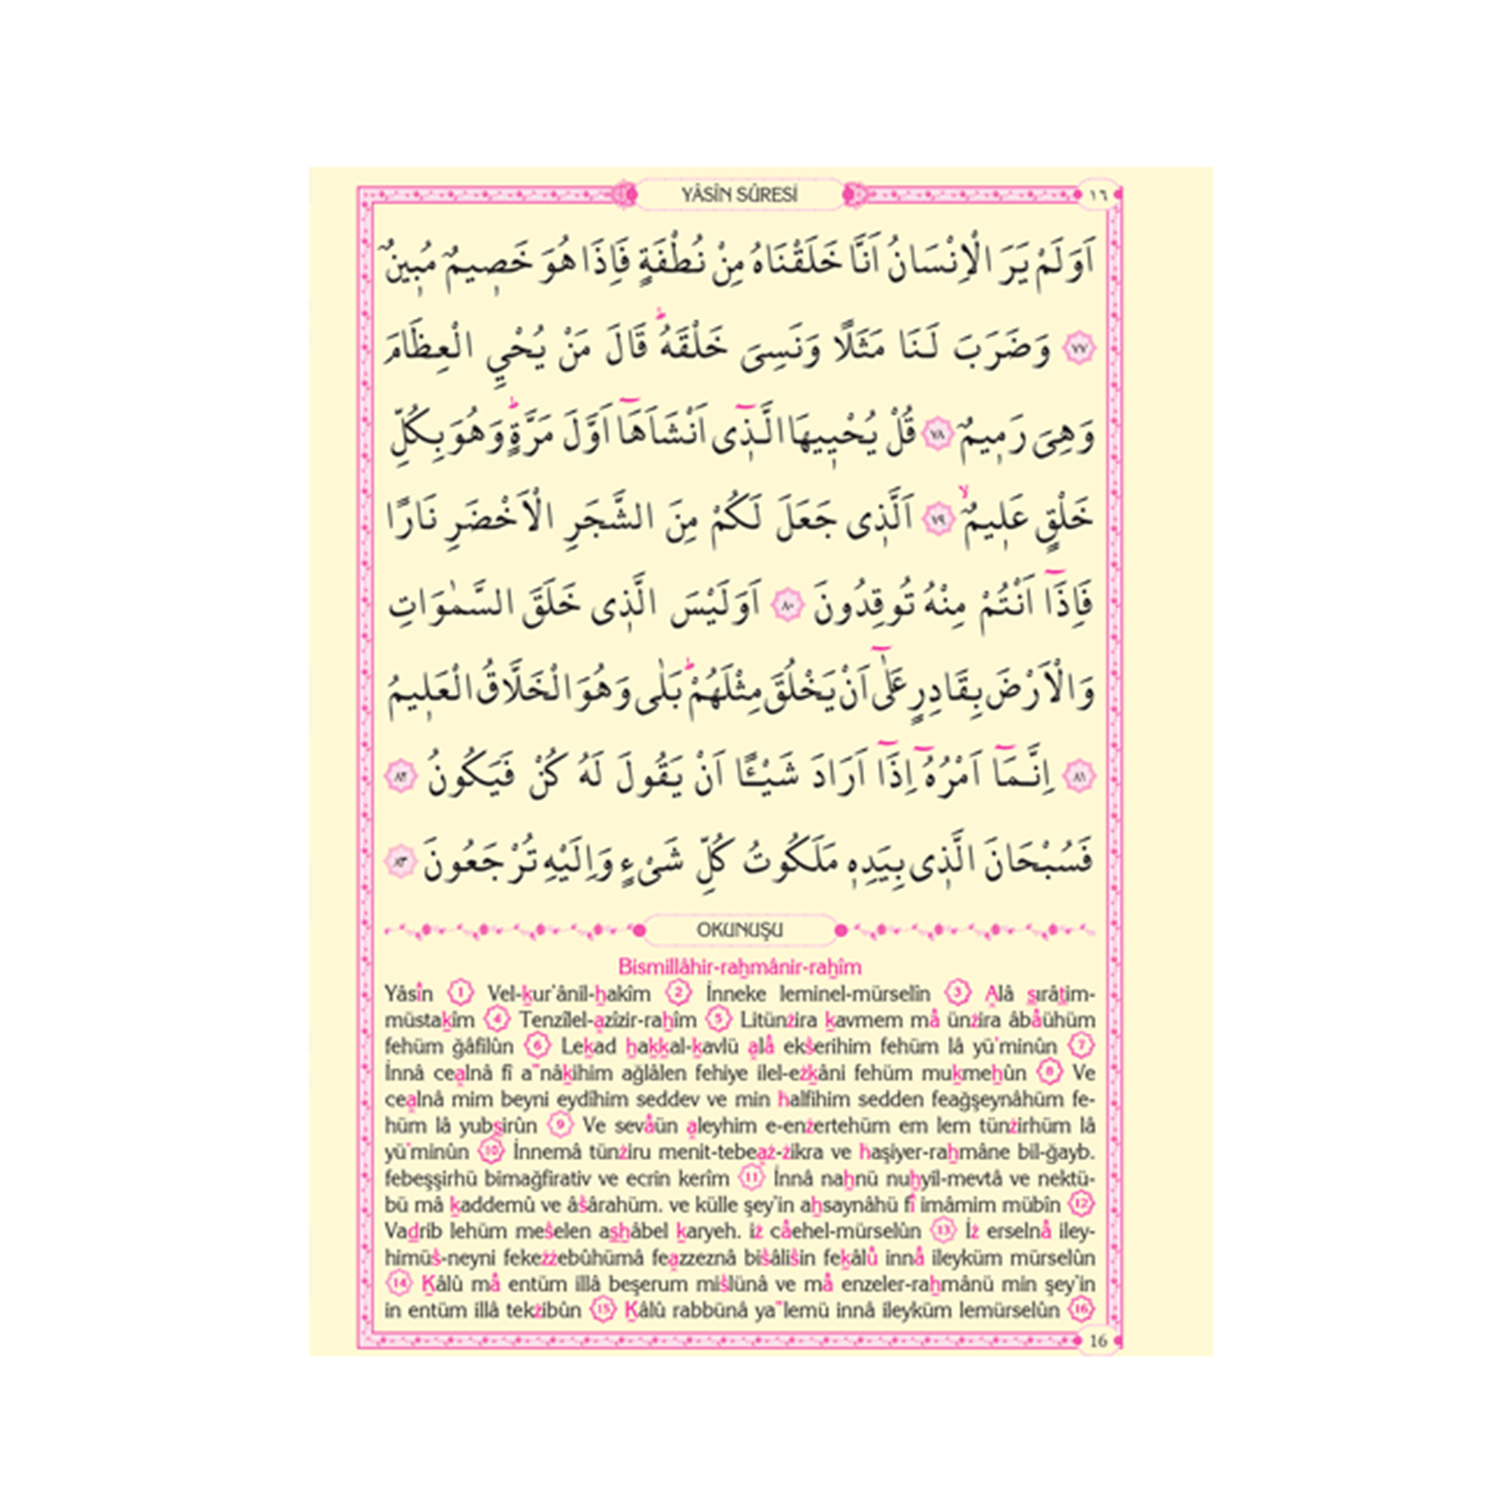 YÂSÎN SÛRESİ
١٦
اَوَلَمْ يَرَ الْاِنْسَانُ اَنَّا خَلَقْنَاهُ مِنْ نُطْفَةٍ فَاِذَا هُوَ خَص۪يمٌ مُب۪ينٌ
﴿٧٧﴾ وَضَرَبَ لَنَا مَثَلًا وَنَسِىَ خَلْقَهُۜ قَالَ مَنْ يُحْيِي الْعِظَامَ
وَهِىَ رَم۪يمٌ ﴿٧٨﴾ قُلْ يُحْي۪يهَا الَّذ۪ٓى اَنْشَاَهَٓا اَوَّلَ مَرَّةٍۜ وَهُوَ بِكُلِّ
خَلْقٍ عَل۪يمٌۙ ﴿٧٩﴾ اَلَّذ۪ى جَعَلَ لَكُمْ مِنَ الشَّجَرِ الْاَخْضَرِ نَارًا
فَاِذَٓا اَنْتُمْ مِنْهُ تُوقِدُونَ ﴿٨٠﴾ اَوَلَيْسَ الَّذ۪ى خَلَقَ السَّمٰوَاتِ
وَالْاَرْضَ بِقَادِرٍ عَلٰٓى اَنْ يَخْلُقَ مِثْلَهُمْۜ بَلٰى وَهُوَ الْخَلَّاقُ الْعَل۪يمُ
﴿٨١﴾ اِنَّمَٓا اَمْرُهُٓ اِذَٓا اَرَادَ شَيْـًٔا اَنْ يَقُولَ لَهُ كُنْ فَيَكُونُ ﴿٨٢﴾
فَسُبْحَانَ الَّذ۪ى بِيَدِه۪ مَلَكُوتُ كُلِّ شَىْءٍ وَاِلَيْهِ تُرْجَعُونَ ﴿٨٣﴾
OKUNUŞU
Bismillâhir-raḥmânir-raḥîm
Yâsîn 1 Vel-ḳur'ânil-ḥakîm 2 İnneke leminel-mürselîn 3 Ạlâ ṣırâṭim-
müstaḳîm 4 Tenzîlel-ạzîzir-raḥîm 5 Litünżira ḳavmem mâ ünżira âbâühüm
fehüm ğâfilûn 6 Leḳad ḥaḳḳal-ḳavlü ạlâ ekṡerihim fehüm lâ yü'minûn 7
İnnâ ceạlnâ fî a'nâḳihim ağlâlen fehiye ilel-eżḳâni fehüm muḳmeḥûn 8 Ve
ceạlnâ mim beyni eydîhim seddev ve min ḣalfihim sedden feağşeynâhüm fe-
hüm lâ yubṣirûn 9 Ve sevâün ạleyhim e-enżertehüm em lem tünżirhüm lâ
yü'minûn 10 İnnemâ tünżiru menit-tebeạż-żikra ve ḣaşiyer-raḥmâne bil-ğayb.
febeşşirhü bimağfirativ ve ecrin kerîm 11 İnnâ naḥnü nuḥyil-mevtâ ve nektü-
bü mâ ḳaddemû ve âṡârahüm. ve külle şey'in aḥsaynâhü fî imâmim mübîn 12
Vaḍrib lehüm meṡelen aṣḥâbel ḳaryeh. iż câehel-mürselûn 13 İż erselnâ iley-
himüṡ-neyni fekeżżebûhümâ feạzzeznâ biṡâliṡin feḳâlû innâ ileyküm mürselûn
14 Ḳâlû mâ entüm illâ beşerum miṡlünâ ve mâ enzeler-raḥmânü min şey'in
in entüm illâ tekżibûn 15 Ḳâlû rabbünâ ya'lemü innâ ileyküm lemürselûn 16
16